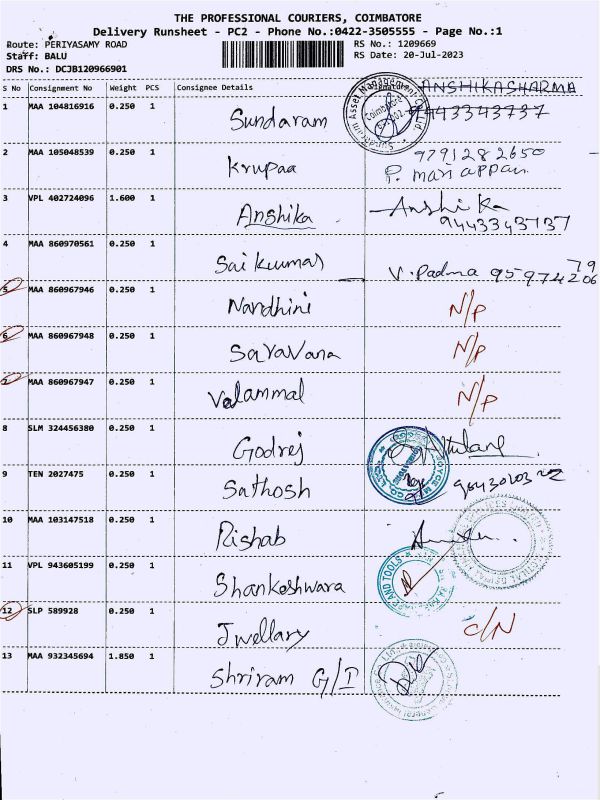 THE PROFESSIONAL COURIERS, COIMBATORE
Delivery Runsheet - PC2 - Phone No.:0422-3505555 - Page No.:1
Route: PERIYASAMY ROAD RS No.: 1209669
Staff: BALU RS Date: 20-Jul-2023
DRS No.: DCJB120966901
S No Consignment No Weight PCS Consignee Details ANSHIKASHARMA
1 MAA 104816916 0.250 1 Sundaram 9443343737
2 MAA 105048539 0.250 1 Krupaa 9791282650
P. mariappan
3 VPL 402724096 1.600 1 Anshika Anshika
9443343737
4 MAA 860970561 0.250 1 Sai Kuumar V. Padma
5 MAA 860967946 0.250 1 Nandhini N/P
6 MAA 860967948 0.250 1 Saravana N/P
7 MAA 860967947 0.250 1 Valammal N/P
8 SLM 324456380 0.250 1 Godrej
9 TEN 2027475 0.250 1 Sathosh
10 MAA 103147518 0.250 1 Rishab
11 VPL 943605199 0.250 1 Shankeshwara
12 SLP 589928 0.250 1 Jwellary C/N
13 MAA 932345694 1.850 1 Shriram G/I